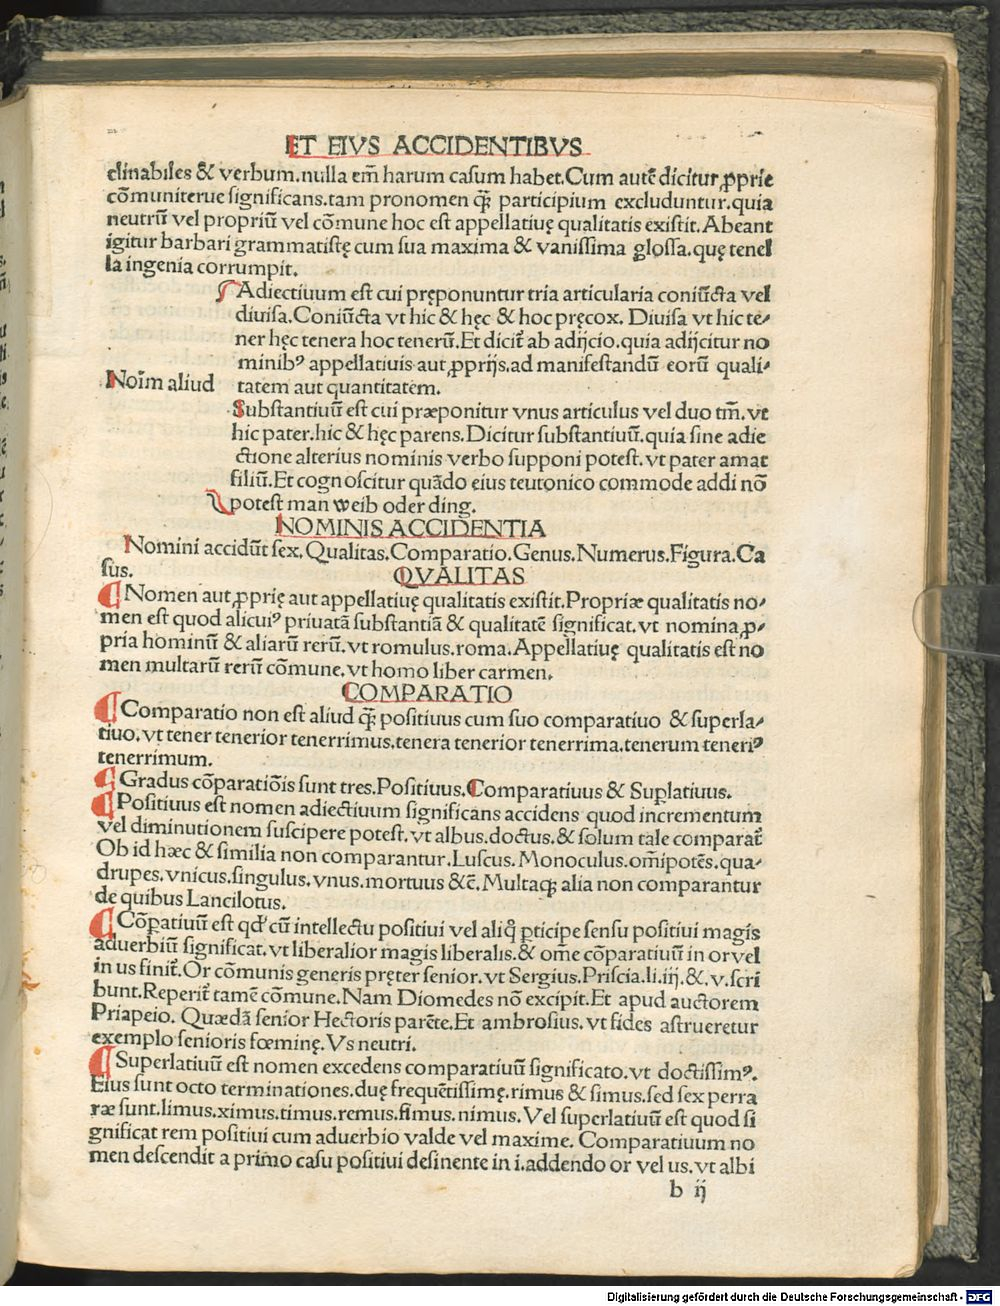 ET EIVS ACCIDENTIBVS
clinabiles & verbum.nulla em̄ harum casum habet.Cum autē dicitur ꝓprie
cōmuniterue significans.tam pronomen ꝙ̄ participium excluduntur.quia
neutrū vel propriū vel cōmune hoc est appellatiuę qualitatis existit.Abeant
igitur barbari grammatistę cum sua maxima & vanissima glossa.quę tenel
la ingenia corrumpit.
Adiectiuum est cui pręponuntur tria articularia coniūcta vel
diuisa.Coniūcta vt hic & hęc & hoc pręcox. Diuisa vt hic te-
ner hęc tenera hoc tenerū.Et dicit᷑ ab adijcio.quia adijcitur no
minibꝰ appellatiuis aut ꝓprijs.ad manifestandū eorū quali-
Noīm aliud
tatem aut quantitatem.
Substantiuū est cui præponitur vnus articulus vel duo tm̄.vt
hic pater.hic & hęc parens.Dicitur substantiuū.quia sine adie
ctione alterius nominis verbo supponi potest.vt pater amat
filiū.Et cognoscitur quādo eius teutonico commode addi nō
potest man weib oder ding.
NOMINIS ACCIDENTIA
Nomini accidūt sex.Qualitas.Comparatio.Genus.Numerus.Figura.Ca
sus.
QVALITAS
¶ Nomen aut ꝓprię aut appellatiuę qualitatis existit.Propriæ qualitatis no-
men est quod alicuiꝰ priuatā substantiā & qualitatē significat.vt nomina ꝓ-
pria hominū & aliarū rerū.vt romulus.roma.Appellatiuę qualitatis est no
men multarū rerū cōmune.vt homo liber carmen.
COMPARATIO
¶ Comparatio non est aliud ꝙ̄ positiuus cum suo comparatiuo & superla-
tiuo.vt tener tenerior tenerrimus.tenera tenerior tenerrima.tenerum teneriꝰ
tenerrimum.
¶ Gradus cōparatiōis sunt tres.Positiuus.Comparatiuus & Suplatiuus.
¶ Positiuus est nomen adiectiuum significans accidens quod incrementum
vel diminutionem suscipere potest.vt albus.doctus.& solum tale comparat᷑
Ob id hæc & similia non comparantur.Luscus.Monoculus.om̄ipotēs.qua-
drupes.vnicus.singulus.vnus.mortuus &c̄.Multaqꝫ alia non comparantur
de quibus Lancilotus.
¶ Cōpatiuū est qd̕ cū intellectu positiui vel aliq̄ pticipe sensu positiui magis
aduerbiū significat.vt liberalior magis liberalis.& om̄e cōparatiuū in or vel
in us finit᷑.Or cōmunis generis pręter senior.vt Sergius.Priscia.li.iij.&.v.scri
bunt.Reperit᷑ tamē cōmune.Nam Diomedes nō excipit.Et apud auctorem
Priapeio. Quædā senior Hectoris parēte.Et ambrosius.vt fides astrueretur
exemplo senioris fœminę.Vs neutri.
¶ Superlatiuū est nomen excedens comparatiuū significato.vt doctissimꝰ.
Eius sunt octo terminationes.duę frequētissimę.rimus & simus.sed sex perra
ræ sunt.limus.ximus.timus.remus.fimus.nimus.Vel superlatiuū est quod si
gnificat rem positiui cum aduerbio valde vel maxime. Comparatiuum no
men descendit a primo casu positiui desinente in i.addendo or vel us.vt albi
b ij
Digitalisierung gefördert durch die Deutsche Forschungsgemeinschaft - DFG